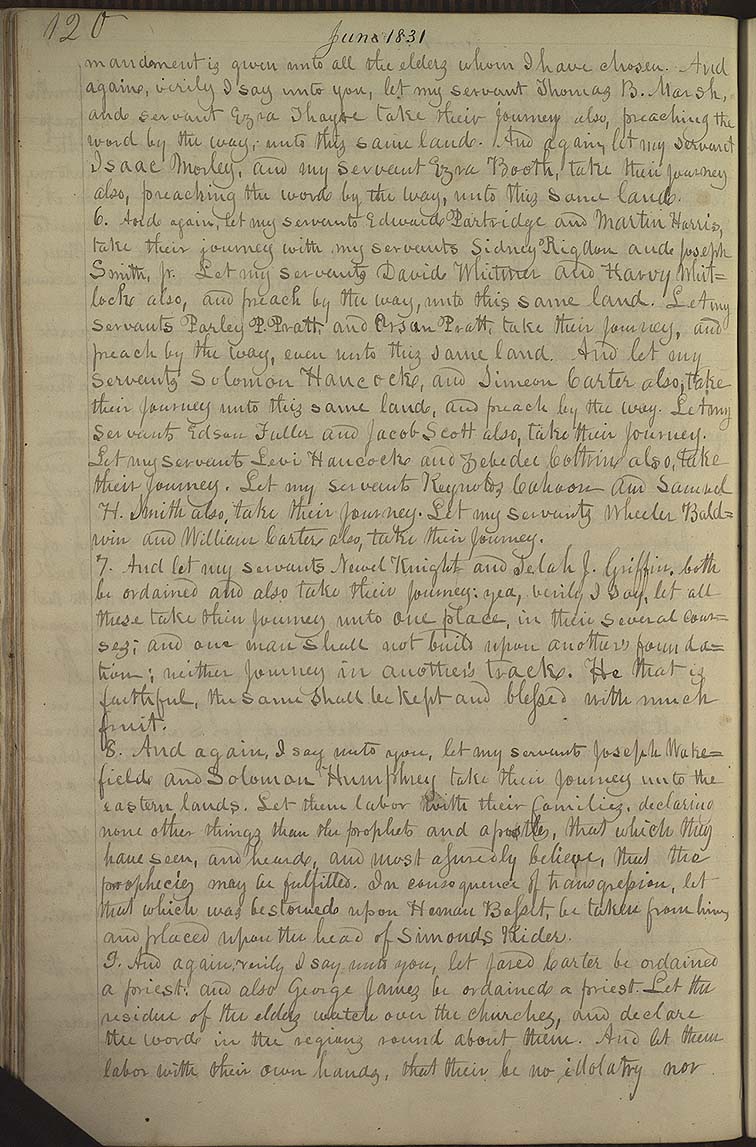 120
June 1831
mandment is given unto all the elders whom I have chosen. And
again, verily I say unto you, let my servant Thomas B. Marsh,
and servant Ezra Thayre take their journey also, preaching the
word by the way, unto this same land. And again, let my servant
Isaac Morley, and my servant Ezra Booth, take their journey
also, preaching the word by the way, unto this same land.
6. And again, let my servants Edward Partridge and Martin Harris,
take their journey with my servants Sidney Rigdon and Joseph
Smith, jr. Let my servants David Whitmer and Harvy Whit=
lock also, and preach by the way, unto this same land. Let my
servants Parley P. Pratt, and Orson Pratt, take their journey, and
preach by the way, even unto this same land. And let my
servants Solomon Hancock, and Simeon Carter also, take
their journey unto this same land, and preach by the way. Let my
servants Edson Fuller and Jacob Scott also, take their journey.
Let my servants Levi Hancock and Zebedee Coltrin also, take
their journey. Let my servants Reynolds Cahoon and Samuel
H. Smith also, take their journey. Let my servants Wheeler Bald=
win and William Carter also, take their journey.
7. And let my servants Newel Knight and Selah J. Griffin, both
be ordained and also take their journey: yea, verily I say, let all
these take their journey unto one place, in their several cour=
ses; and one man shall not build upon another's founda=
tion; neither journey in another's track. He that is
faithful, the same shall be kept and blessed with much
fruit.
8. And again, I say unto you, let my servants Joseph Wake=
field and Solomon Humphrey take their journey unto the
eastern lands. Let them labor with their families, declaring
none other things than the prophets and apostles, that which they
have seen, and heard, and most assuredly believe, that the
prophecies may be fulfilled. In consequence of transgression, let
that which was bestowed upon Heman Basset, be taken from him,
and placed upon the head of Simonds Rider.
9. And again, verily I say unto you, let Jared Carter be ordained
a priest, and also George James be ordained a priest. Let the
residue of the elders watch over the churches, and declare
the word in the regions round about them. And let them
labor with their own hands, that their be no idolatry nor